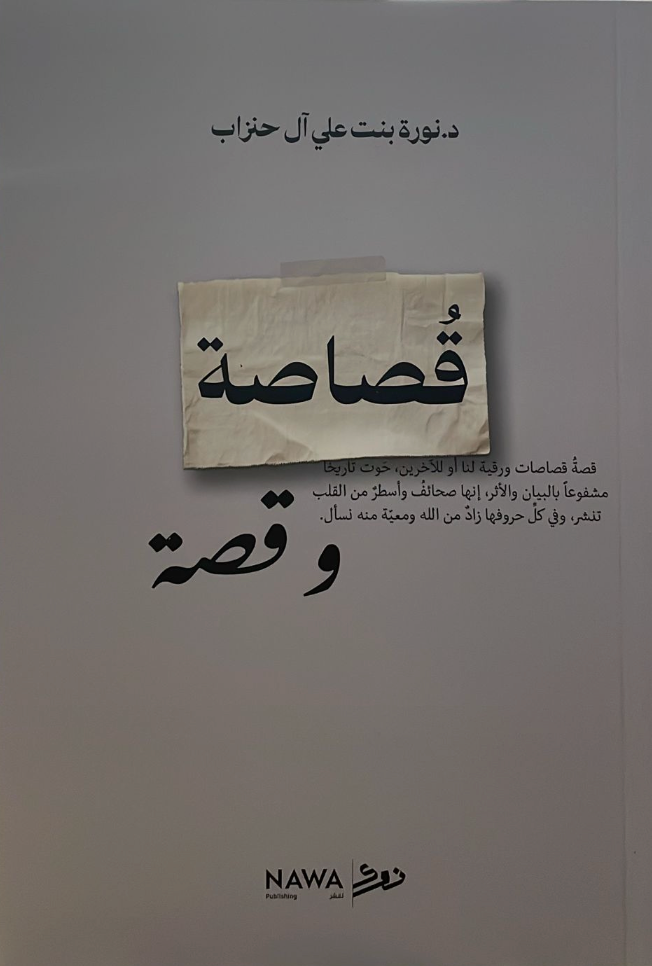 د.نورة بنت علي آل حنزاب
قُصاصة
قصةُ قصاصات ورقية لنا أو للآخرين، حَوت تاريخًا
مشفوعاً بالبيان والأثر، إنها صحائفُ وأسطرٌ من القلب
تنشر، وفي كلِّ حروفها زادٌ من الله ومعيّة منه نسأل.
و قصة
NAWA نوى
Publishing للنشر